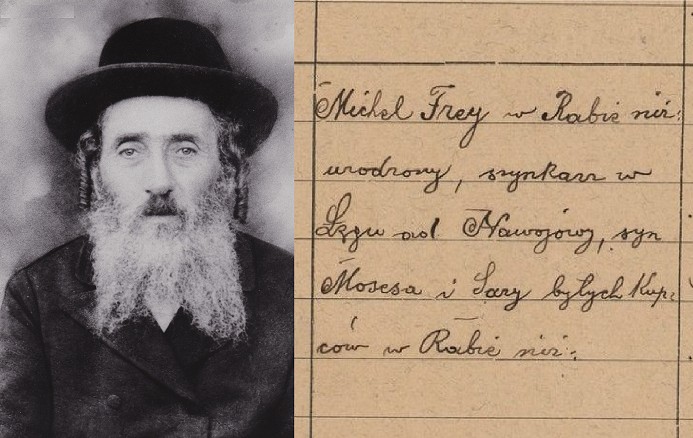 Michel Frey w Rabie niż:
urodzony, szynkarz w
Łęgu ad Nawojów, syn
Mosesa i Sary byłych kup:
ców w Rabie niż: